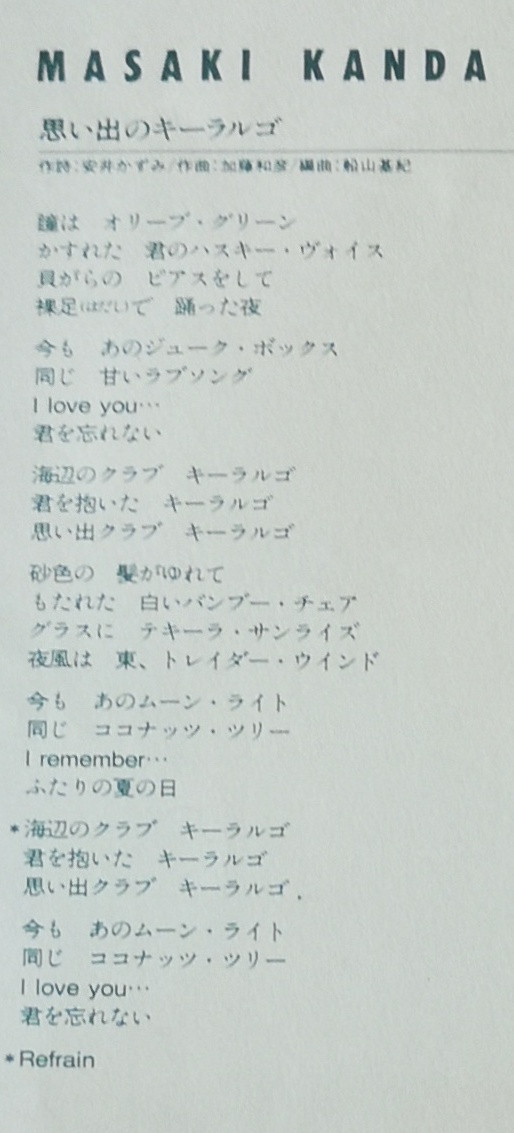 MASAKI KANDA
思い出のキーラルゴ
作詩:安井かずみ/作曲:加藤和彦/編曲:船山基紀
瞳は　オリーブ・グリーン
かすれた　君のハスキー・ヴォイス
貝がらの　ピアスをして
裸足(はだし)で　踊った夜
今も　あのジューク・ボックス
同じ　甘いラブソング
I love you…
君を忘れない
海辺のクラブ　キーラルゴ
君を抱いた　キーラルゴ
思い出クラブ　キーラルゴ
砂色の　髪がゆれて
もたれた　白いバンブー・チェア
グラスに　テキーラ・サンライズ
夜風は　東、トレイダー・ウインド
今も　あのムーン・ライト
同じ　ココナッツ・ツリー
I remember…
ふたりの夏の日
*海辺のクラブ　キーラルゴ
君を抱いた　キーラルゴ
思い出クラブ　キーラルゴ
今も　あのムーン・ライト
同じ　ココナッツ・ツリー
I love you…
君を忘れない
*Refrain